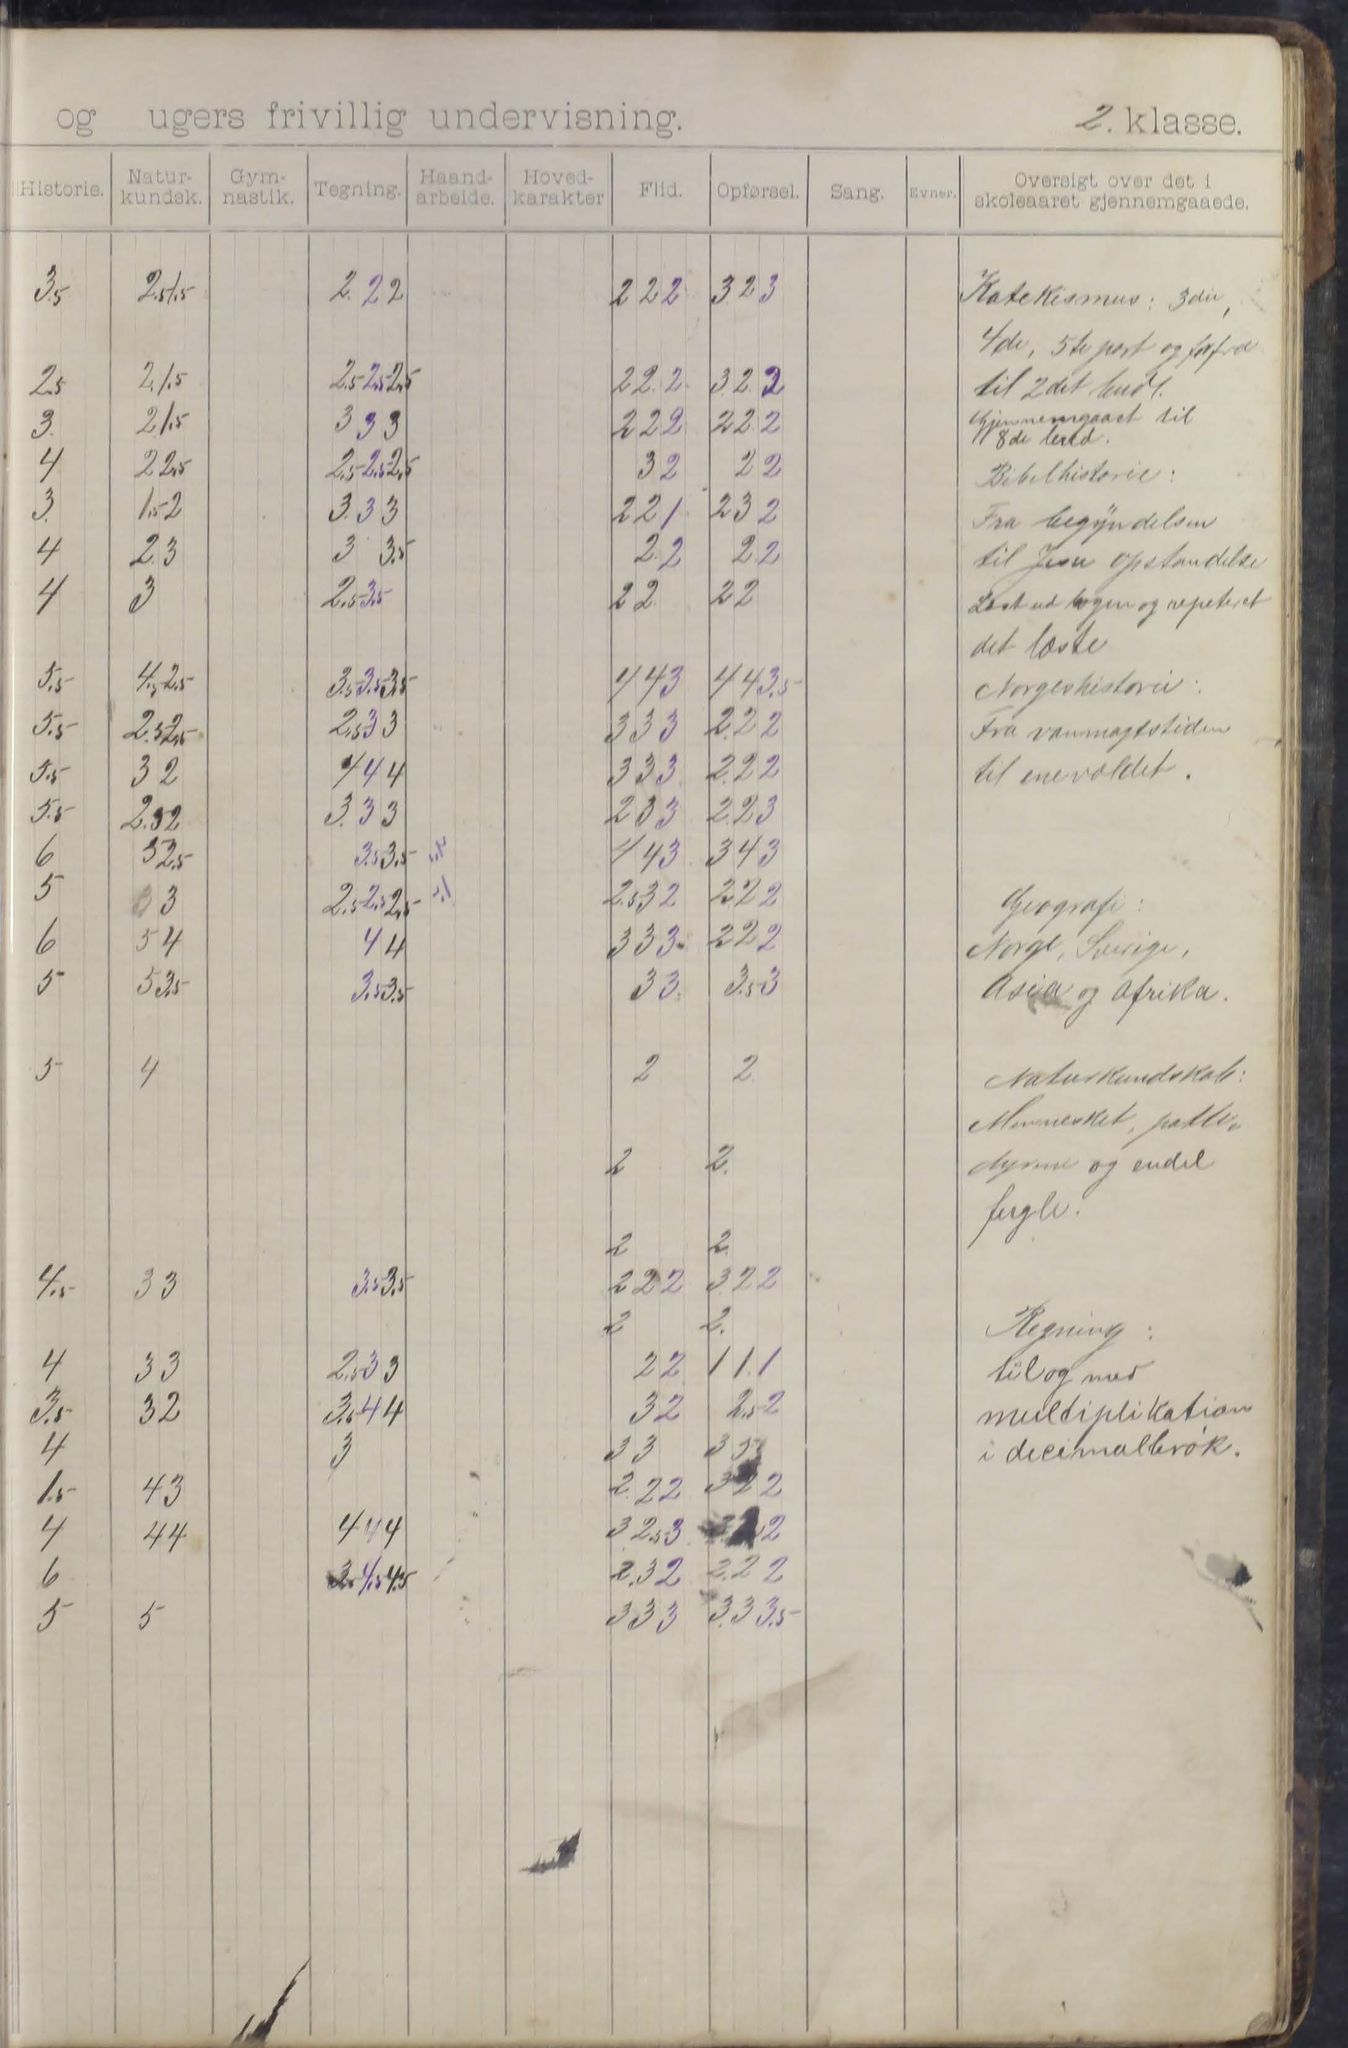 og ugers frivillig undervisning. 2. klasse.
Historie. Natur-kundsk. Gym-nastik. Tegning. Haand-arbeide. Hoved-karakter Flid. Opførsel. Sang. Evner. Oversigt over det i skoleaaret gjennemgaaede.
3.5 2.5 1.5 2. 2 2 2 2 2 3 2 3 Katekismus: 3die,
4de, 5te part og forfra
2.5 2. 1.5 2.5 2.5 2.5 2 2. 2 3. 2. 2 til 2det bud.
3. 2 1.5 3 3 3 2 2 2 2 2 2 Gjennemgaaet til
8de bud.
4 2 2.5 2.5 2.5 2.5 3 2 2 2 Bibelhistorie:
3. 1.5 2 3. 3 3 2 2 1 2 3 2 Fra begyndelsen
4 2 3 3 3.5 2. 2 2 2 til Jesu opstandelse
4 3 2.5 3.5 2 2 2 2 Læst ud bogen og repeteret
det læste
5.5 4.5 2.5 3.5 3.5 3.5 4 4 3 4 4 3.5 Norgeshistorie:
5.5 2.5 2.5 2.5 3 3 3 3 3 2. 2 2 Fra vanmagtstiden
5.5 3 2 4 4 4 3 3 3 2. 2 2 til enevældet.
5.5 2. 2 3. 3 3 2 3 3 2. 2 3
6 3 2.5 3.5 3.5 4 4 3 3 4 3
5 3 2.5 2.5 2.5 2.5 3 2 2 2 2 Geografi:
6 5 4 4 4 3 3 3 2 2 2 Norge, Sverige,
5 5 3.5 3.5 3.5 3 3 3.5 3 Asia og Afrika.
5 4 2 2. Naturkundskab:
Mennesket, patte-
2 2. dyrene og endel
fugle.
2 2.
4.5 3 3 3.5 3.5 2 2 2 3 2 2
2 2. Regning:
4 3 3 2.5 3 3 2 2 1 1 1 til og med
3.5 3 2 3.5 4 4 3 2 2.5 2 multiplikation
4 3 3 3 3 i decimalbrøk.
1.5 4 3 2. 2 2 3 2 2
4 4 4 4 4 4 3 2.5 3 2
6 4.5 4.5 2. 3 2 2. 2 2
5 5 3 3 3 3. 3 3.5